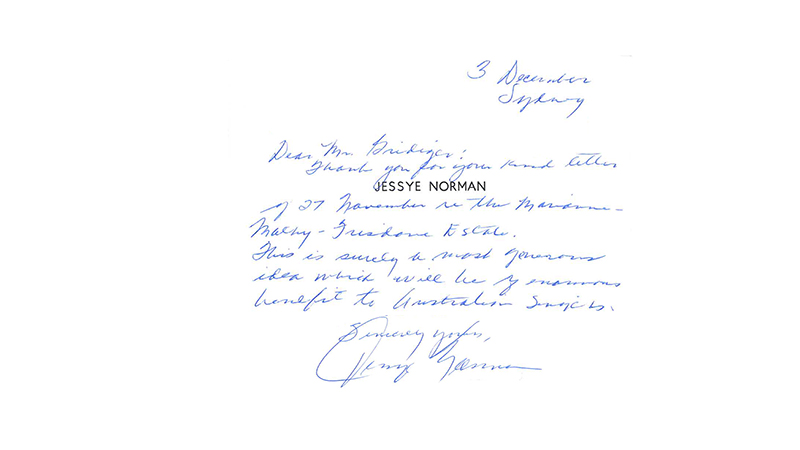 3 December
Sydney
Dear Mr.
Thank you for your kind letter
JESSYE NORMAN
of 27 November re the Marianne-
Mathy - Frisdane Estate.
This is surely a most generous
idea which will be of enormous
benefit to Australian Singers.
Sincerely yours,
Jessye Norman